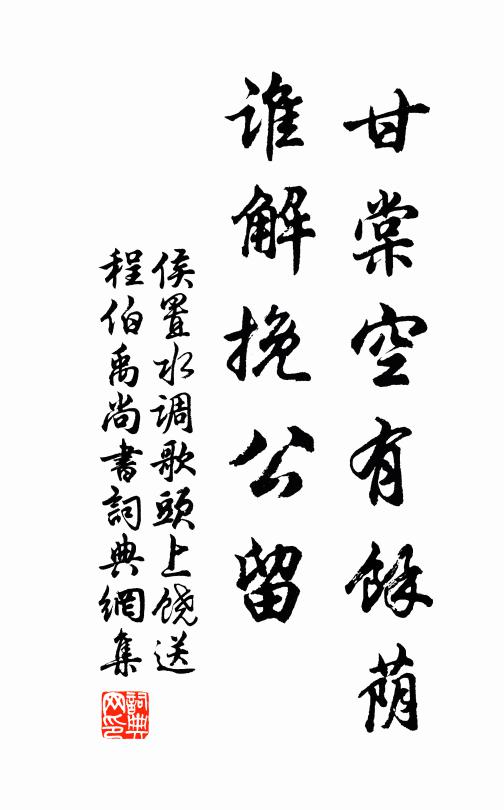 甘棠空有餘荫
谁解挽公留
侯置水调歌頭上饒送
程伯禹尚書詞典網集
詞典网印